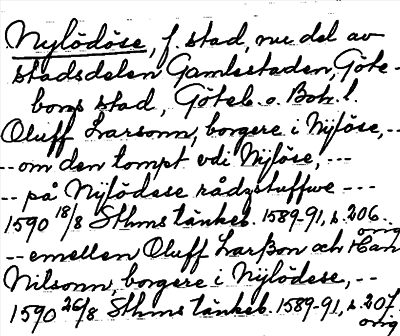 Nylödöse, f. stad, nu del av
stadsdelen Gamlestaden, Göte-
borgs stad, Göteb. o. Boh. l.
Oluff Larsonn, borgere i Nylöse, --
-- om den tompt vdi Nylöse, ---
-- på Nylödese rådzstuffwe ---
1590 18/8 Sthms tänkeb. 1589-91, s. 206.
orig
-- emellen Oluff Larßon och Han
Nilsonn, borgere i Nylödese, --
1590 26/8 Sthms tänkeb. 1589-91, s. 207
orig